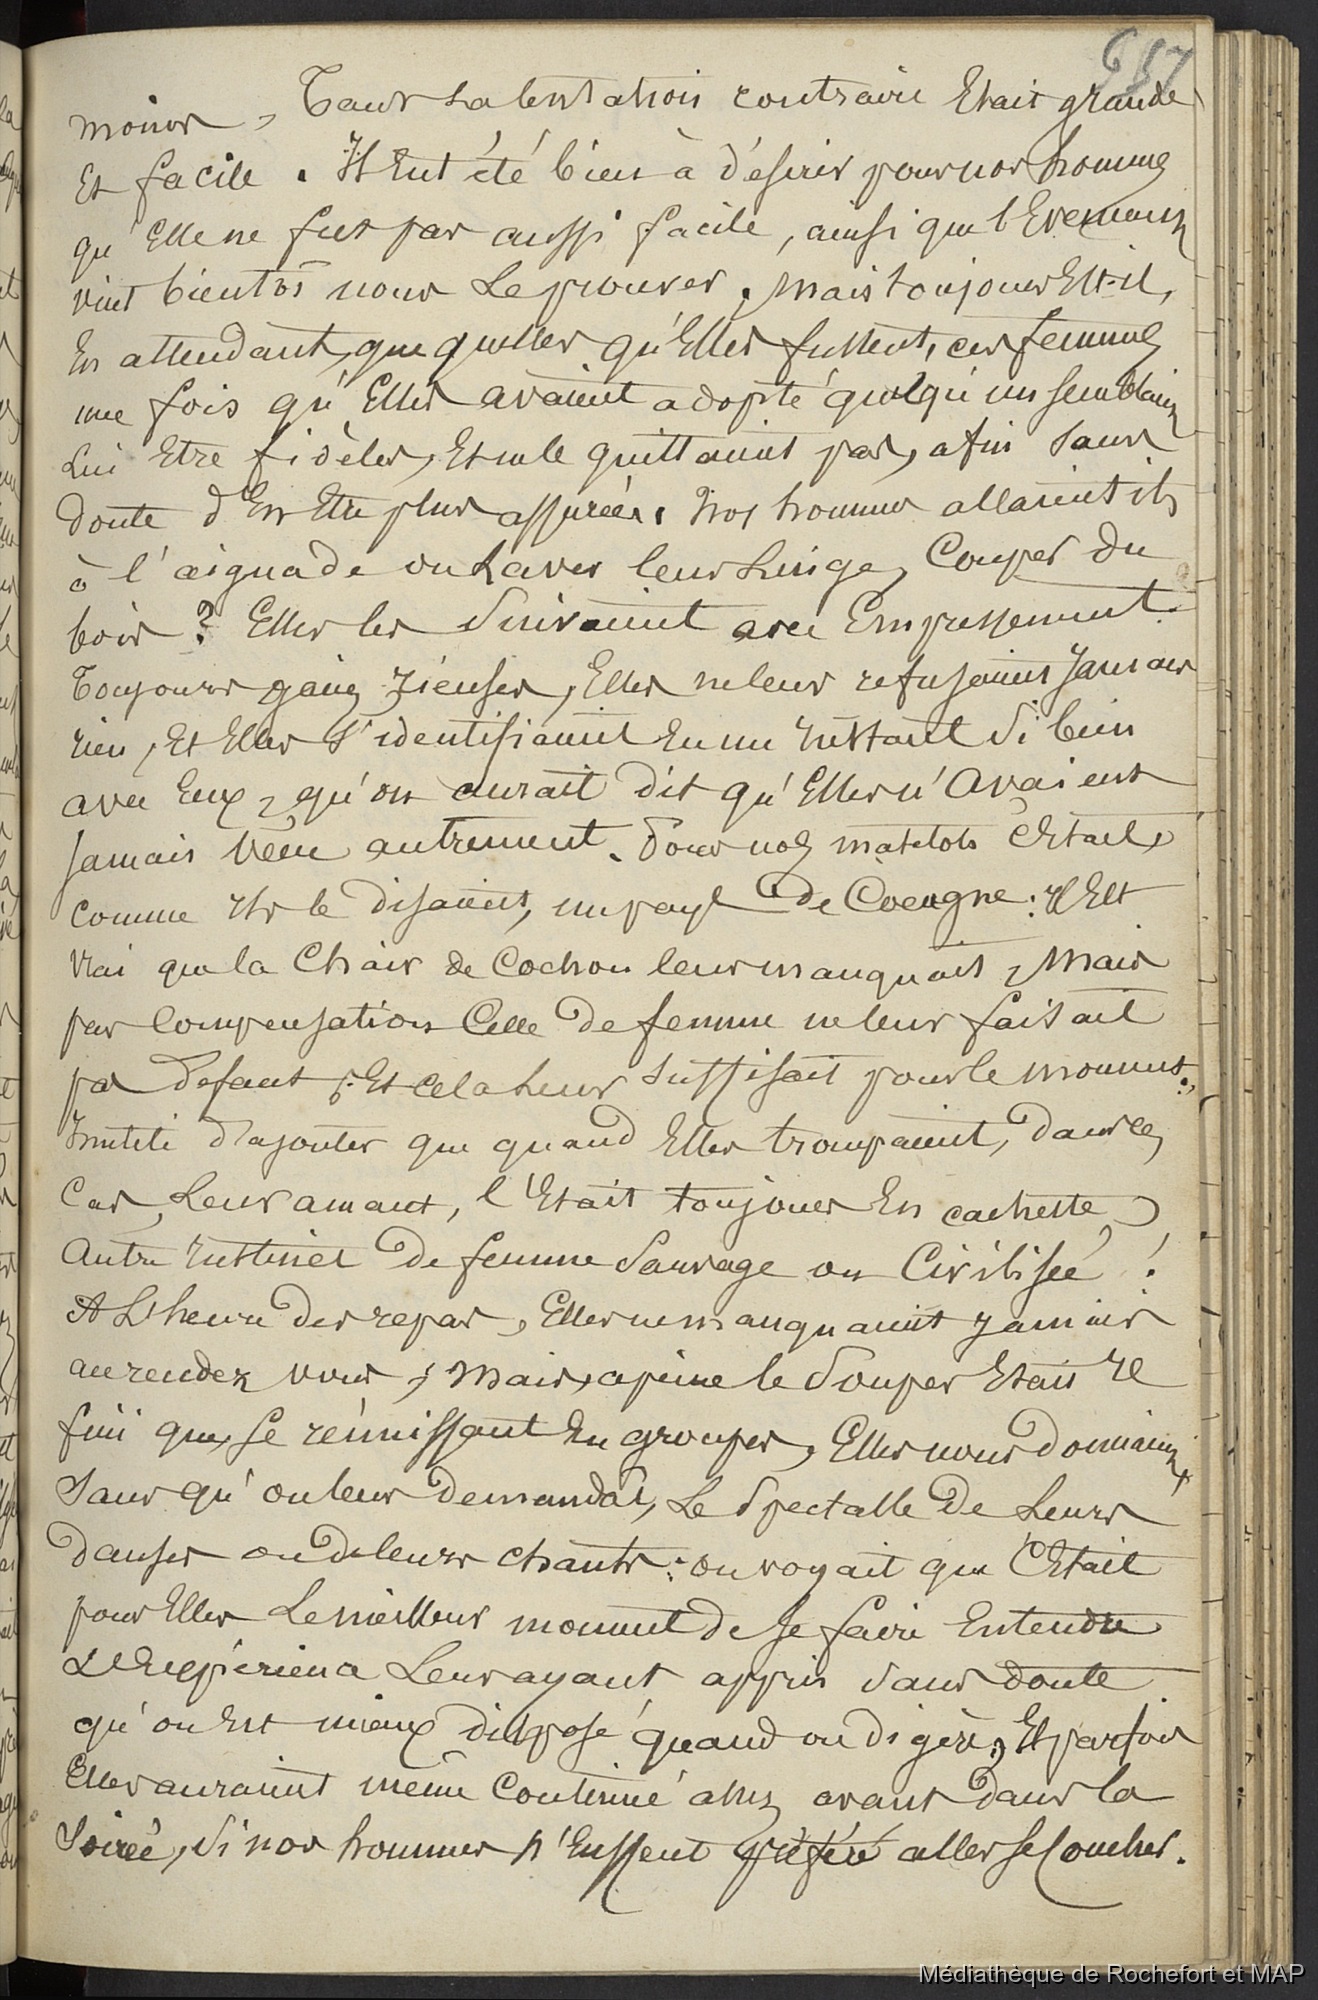 657
moins, Tant la tentation contraire Etait grande
Et facile. Il Eut été bien à désirer pour nos hommes
qu'Elle ne fut pas aussi facile, ainsi que l'Evenement
vint bientôt nous Le prouver. Mais toujours Est-il,
En attendant, que quelles qu'Elles fussent, ces femmes
une fois qu'Elles avaient adopté quelqu'un semblaient
Lui Etre fidèles, Et ne le quittaient pas, afin sans
doute d'En Etre plus assurées. Nos hommes allaient ils
à l'aiguade ou Laver leur Linge, Couper du
bois ? Elles les Suivaient avec Empressement.
Toujours gaies, rieuses, Elles ne leur refusaient Jamais
rien, Et Elles S'identifiaient En un Instant Si bien
avec Eux, qu'on aurait dit qu'Elles n'Avaient
Jamais Vécu autrement. Pour nos matelots C'Etait,
comme Ils le disaient, un pays de Cocagne : Il Est
Vrai que la Chair de Cochon leur manquait, Mais
par Compensation Celle de femme ne leur faisait
pas defaut ; Et cela Leur Suffisait pour le moment.
Inutile d'ajouter que quand Elles trompaient, dans ces
Cas, Leur amant, C'Etait toujours En cachette,
Autre Instinct de femme Sauvage ou Civilisée !
A L'heure des repas, Elles ne manquaient Jamais
au rendez vous ; Mais, a peine le Souper Etait Il
fini que, se réunissant En groupes, Elles nous donnaient,
Sans qu'on leur demandat, Le Spectacle de Leurs
danses ou de leurs chants : on voyait que C'Etait
pour Elles Le meilleur moment de se faire Entendre
L'Expérience Leur ayant appris Sans doute
qu'on Est mieux disposé quand on digère, Et parfois
Elles auraient même Continué assez avant dans la
Soirée, Si nos hommes n'Eussent préféré aller se Coucher.
Médiathèque de Rochefort et MAP